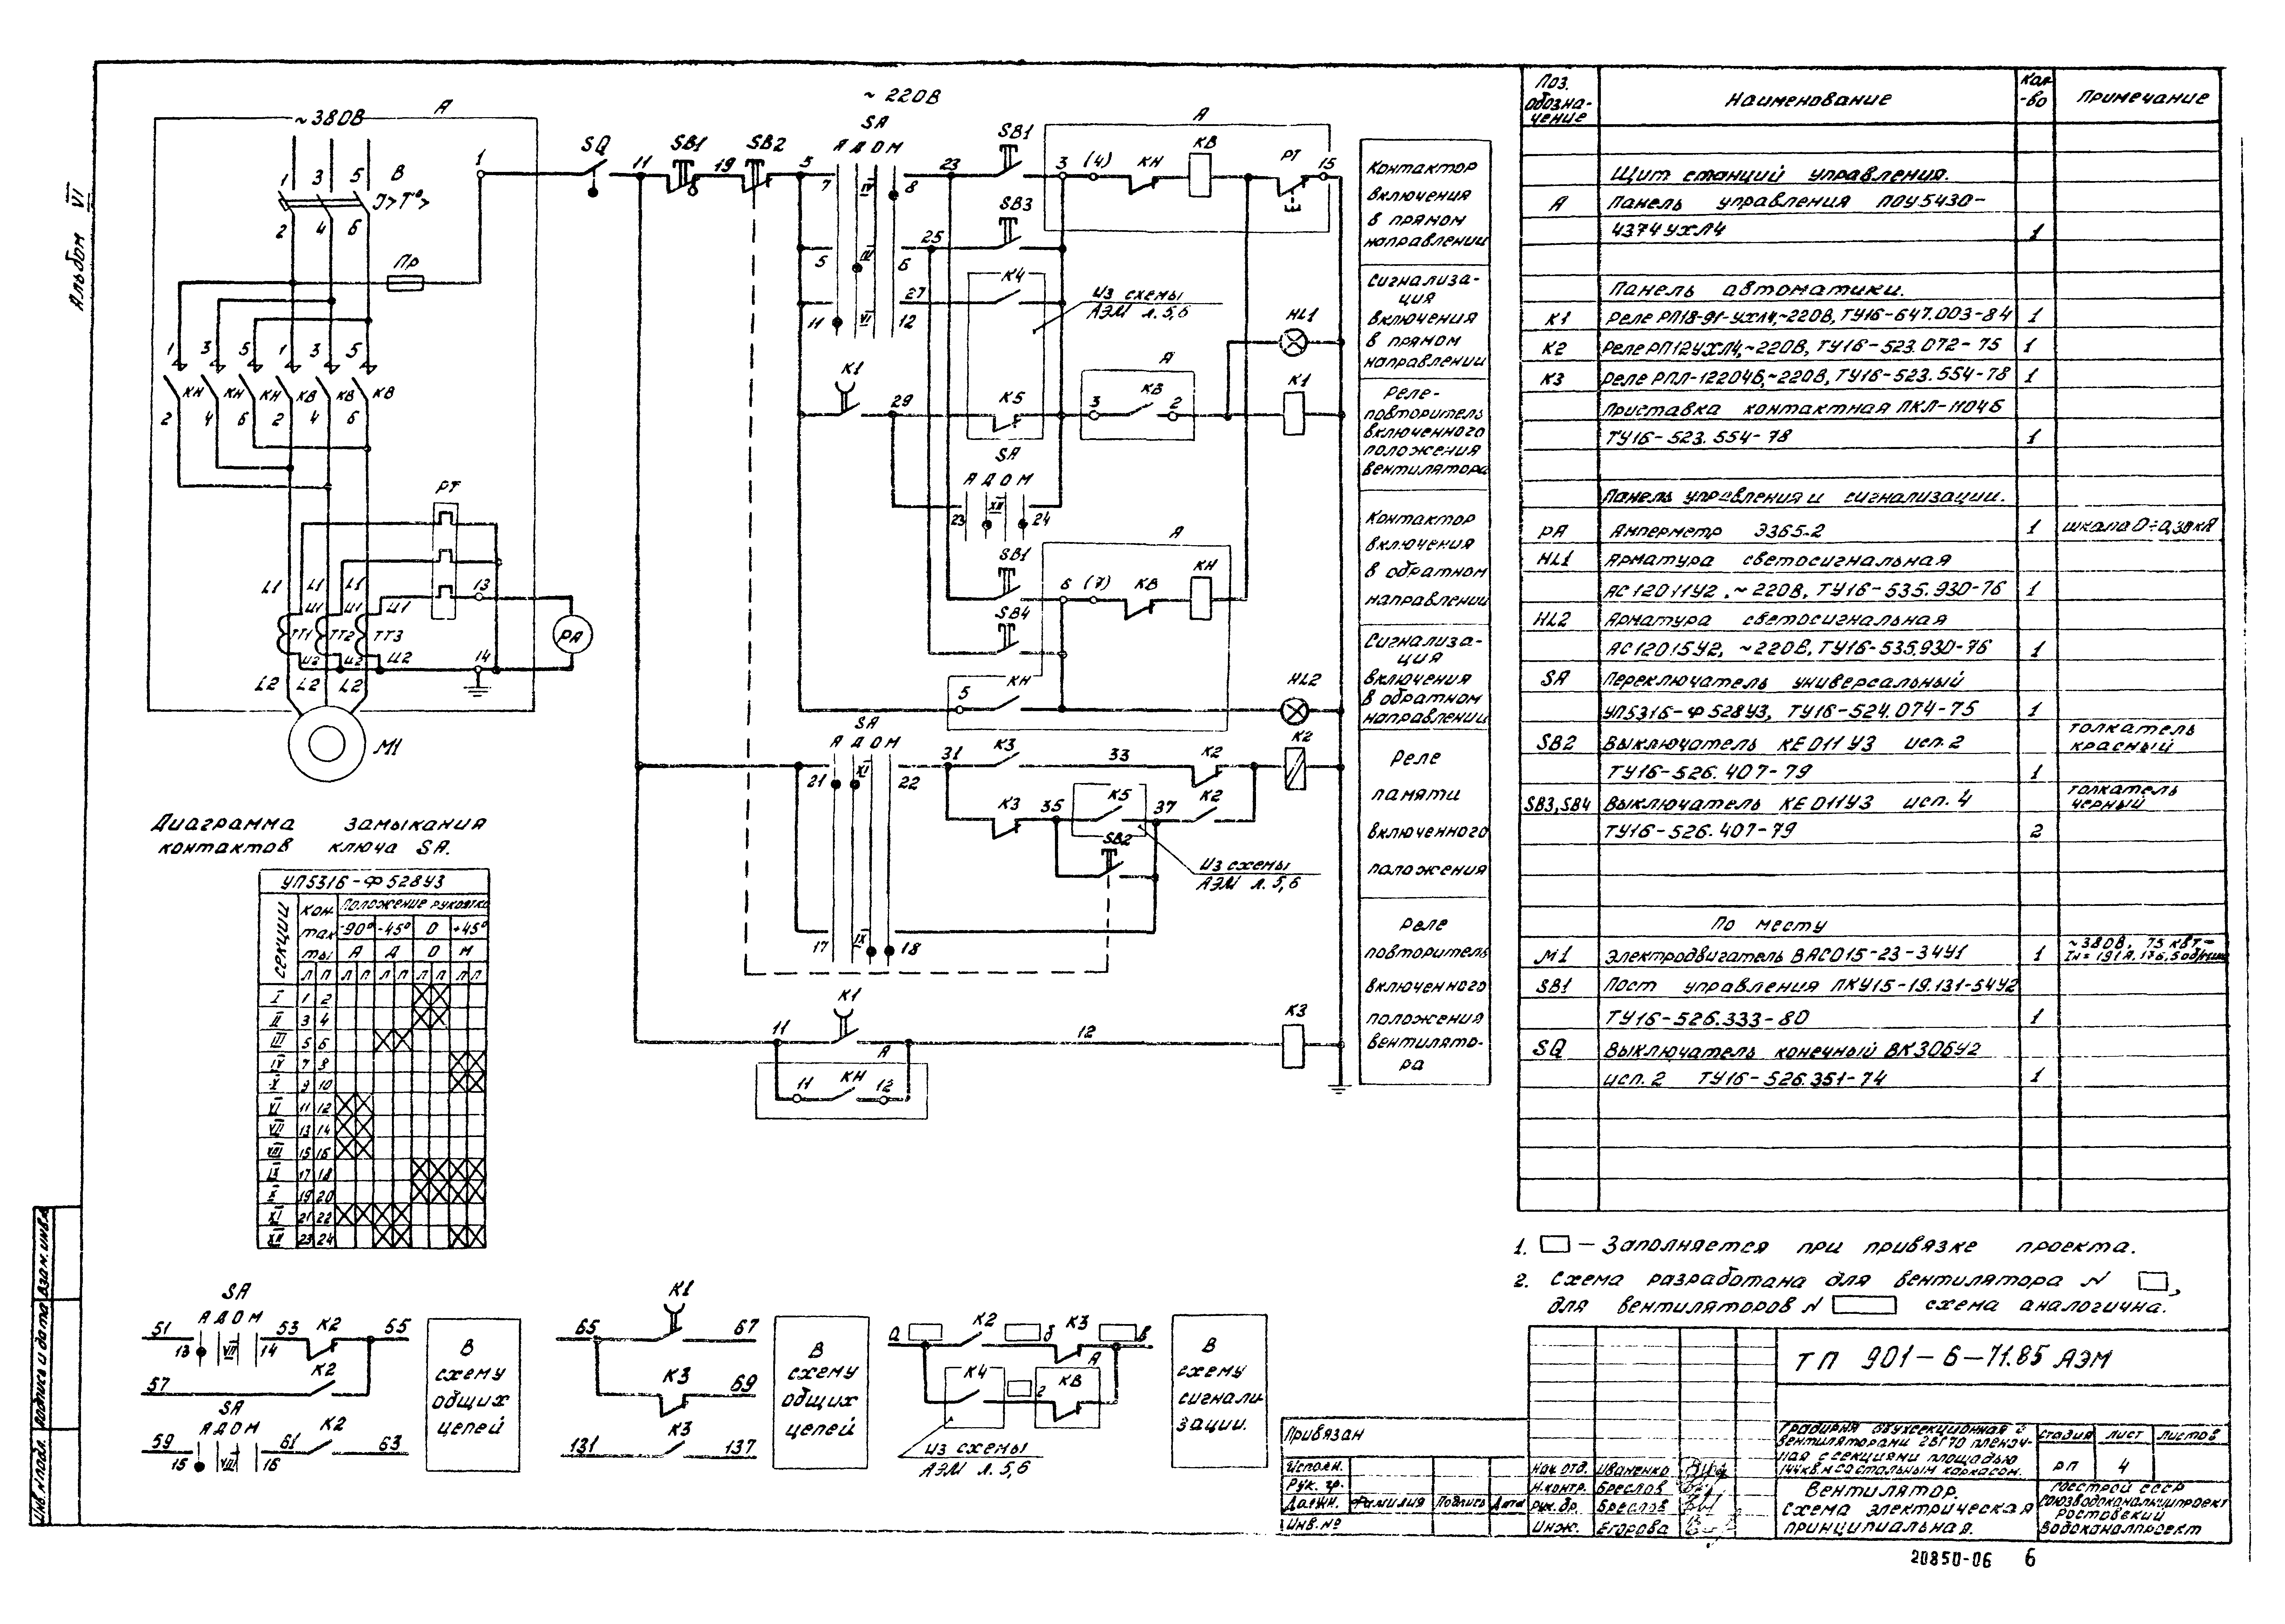 Альбом VI
~380В
А
1
3
5
В
I>T°>
2
4
6
1
Пр
1 3 5 1 3 5
КН КН КН КВ КВ КВ
2 4 6 2 4 6
РТ
L1 L1 L1
И1 И1 И1
13
ТТ1 ТТ2 ТТ3
РА
И2 И2 И2
14
L2 L2 L2
М1
~ 220В
SQ
11
SB1
19
SB2
5
SA
А Д О М
7 IV 8
23
SB1
А
3 (4)
КН
КВ
РТ
15
SB3
25
5 III 6
К4
27
11 VI 12
Из схемы
АЭМ л. 5,6
HL1
К1
29
К5
А
3 КВ 2
К1
SA
А Д О М
23 XII 24
SB1
А
6 (7)
КВ
КН
SB4
5 КН
HL2
SA
А Д О М
21 XI 22
31
К3
33
К2
К2
К3
35
К5
37
К2
SB2
Из схемы
АЭМ л. 5,6
17 IX 18
К1
11
12
К3
А
11 КН 12
Контактор
включения
в прямом
направлении
Сигнализа-
ция
включения
в прямом
направлении
Реле-
повторитель
включенного
положения
вентилятора
Контактор
включения
в обратном
направлении
Сигнализа-
ция
включения
в обратном
направлении
Реле
памяти
включенного
положения
Реле
повторитель
включенного
положения
вентилято-
ра
Диаграмма замыкания
контактов ключа SA.
УП5316-Ф528У3
секции
Кон-
так
ты
Положение рукоятки
-90° -45° 0 +45°
А Д О М
Л П Л П Л П Л П Л П
I 1 2
II 3 4
III 5 6
IV 7 8
V 9 10
VI 11 12
VII 13 14
VIII 15 16
IX 17 18
X 19 20
XI 21 22
XII 23 24
SA
А Д О М
51
13 VII 14
53
К2
55
57
К2
SA
А Д О М
59
15 VIII 16
61
К2
63
В
схему
общих
цепей
К1
65
67
К3
69
131
К3
137
В
схему
общих
цепей
а
К2
б
К3
в
К4
г
А
КВ
Из схемы
АЭМ л. 5,6
В
схему
сигнали-
зации.
Поз.
обозна-
чение
Наименование
Кол-
-во
Примечание
Щит станций управления.
А Панель управления ПОУ5430-
4374УХЛ4 1
Панель автоматики.
К1 Реле РП18-91-УХЛ4,~220В, ТУ16-647.003-84 1
К2 Реле РП12УХЛ4,~220В, ТУ16-523.072-75 1
К3 Реле РПЛ-12204Б,~220В, ТУ16-523.554-78 1
Приставка контактная ПКЛ-1104Б
ТУ16-523.554-78 1
Панель управления и сигнализации.
РА Амперметр Э365-2 1 шкала 0÷0,30кА
HL1 Арматура светосигнальная
АС12011У2, ~220В, ТУ16-535.930-76 1
HL2 Арматура светосигнальная
АС12015У2, ~220В, ТУ16-535.930-76 1
SA Переключатель универсальный
УП5316-Ф528У3, ТУ16-524.074-75 1
SB2 Выключатель КЕ011У3 исп. 2 толкатель красный
ТУ16-526.407-79 1
SB3, SB4 Выключатель КЕ011У3 исп. 4 толкатель черный
ТУ16-526.407-79 2
По месту
М1 Электродвигатель ВАСО15-23-34У1 1 ~380В, 75 кВт
Iн=191А, 176,5об/мин
SB1 Пост управления ПКУ15-19.131-54У2
ТУ16-526.333-80 1
SQ Выключатель конечный ВК30БУ2
исп. 2 ТУ16-526.351-74 1
1. — Заполняется при привязке проекта.
2. Схема разработана для вентилятора N ,
для вентиляторов N схема аналогична.
ТП 901-6-71.85 АЭМ
Привязан
Исполн.
Рук. гр.
Должн. Фамилия Подпись Дата
Инв. №
Нач. отд. Иваненко
Н.контр. Бреслов
Рук. бр. Бреслов
Инж. Егорова
Градирня двухсекционная с
вентиляторами 2ВГ70 пленоч-
ная с секциями площадью
144кв.м со стальным каркасом.
Стадия Лист Листов
РП 4
Вентилятор.
Схема электрическая
принципиальная.
Госстрой СССР
Союзводоканалниипроект
Ростовский
Водоканалпроект
Инв. N подл. Подпись и дата Взам. инв. N
20850-06 6